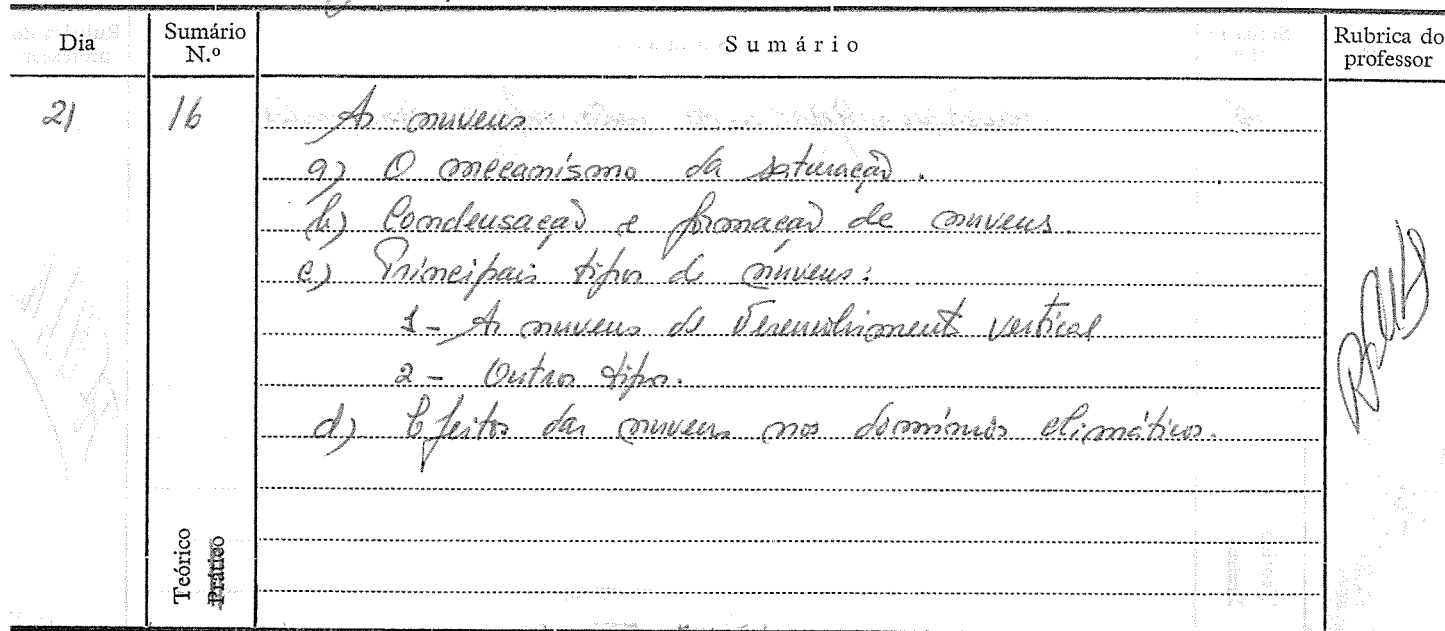 Dia
Sumário N.º
Sumário
Rubrica do professor
21
16
As nuvens
a) O mecanismo da saturação.
b) Condensação e formação de nuvens.
c) Principais tipos de nuvens:
1 - As nuvens de desenvolvimento vertical
2 - Outros tipos.
d) Efeitos das nuvens nos domínios climáticos.
Teórico
Prático